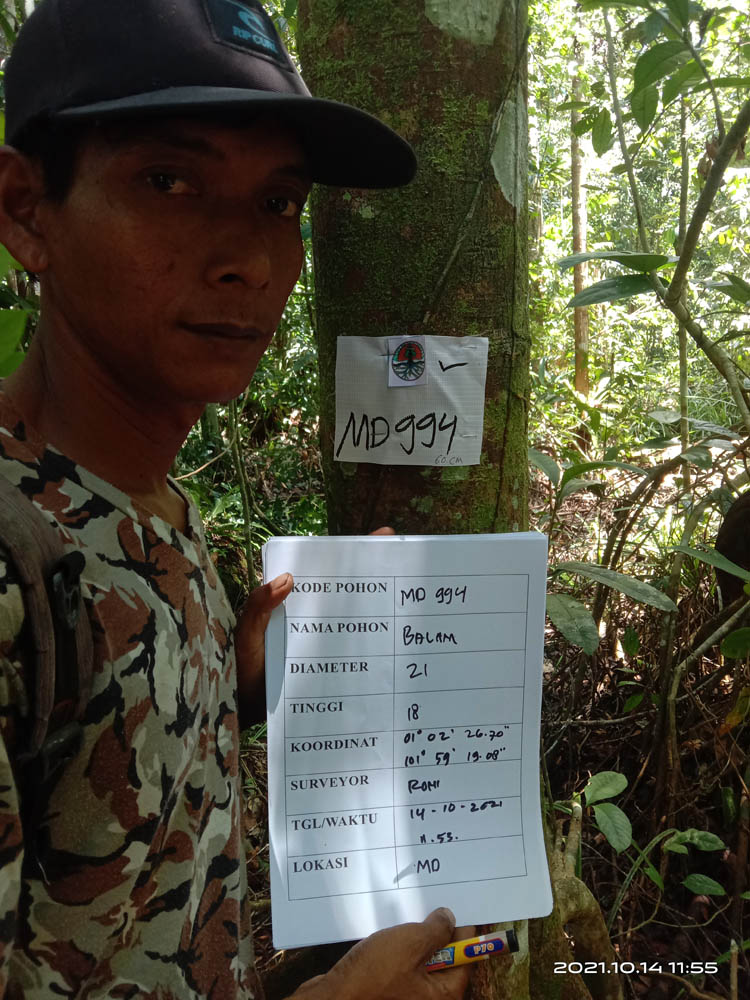 RIP CURL
MD 994
60 CM
KODE POHON MD 994
NAMA POHON BALAM
DIAMETER 21
TINGGI 18
KOORDINAT 01° 02' 26.70"
101° 59' 19.08"
SURVEYOR RONI
TGL/WAKTU 14-10-2021
11.53.
LOKASI MD
P70
2021.10.14 11:55